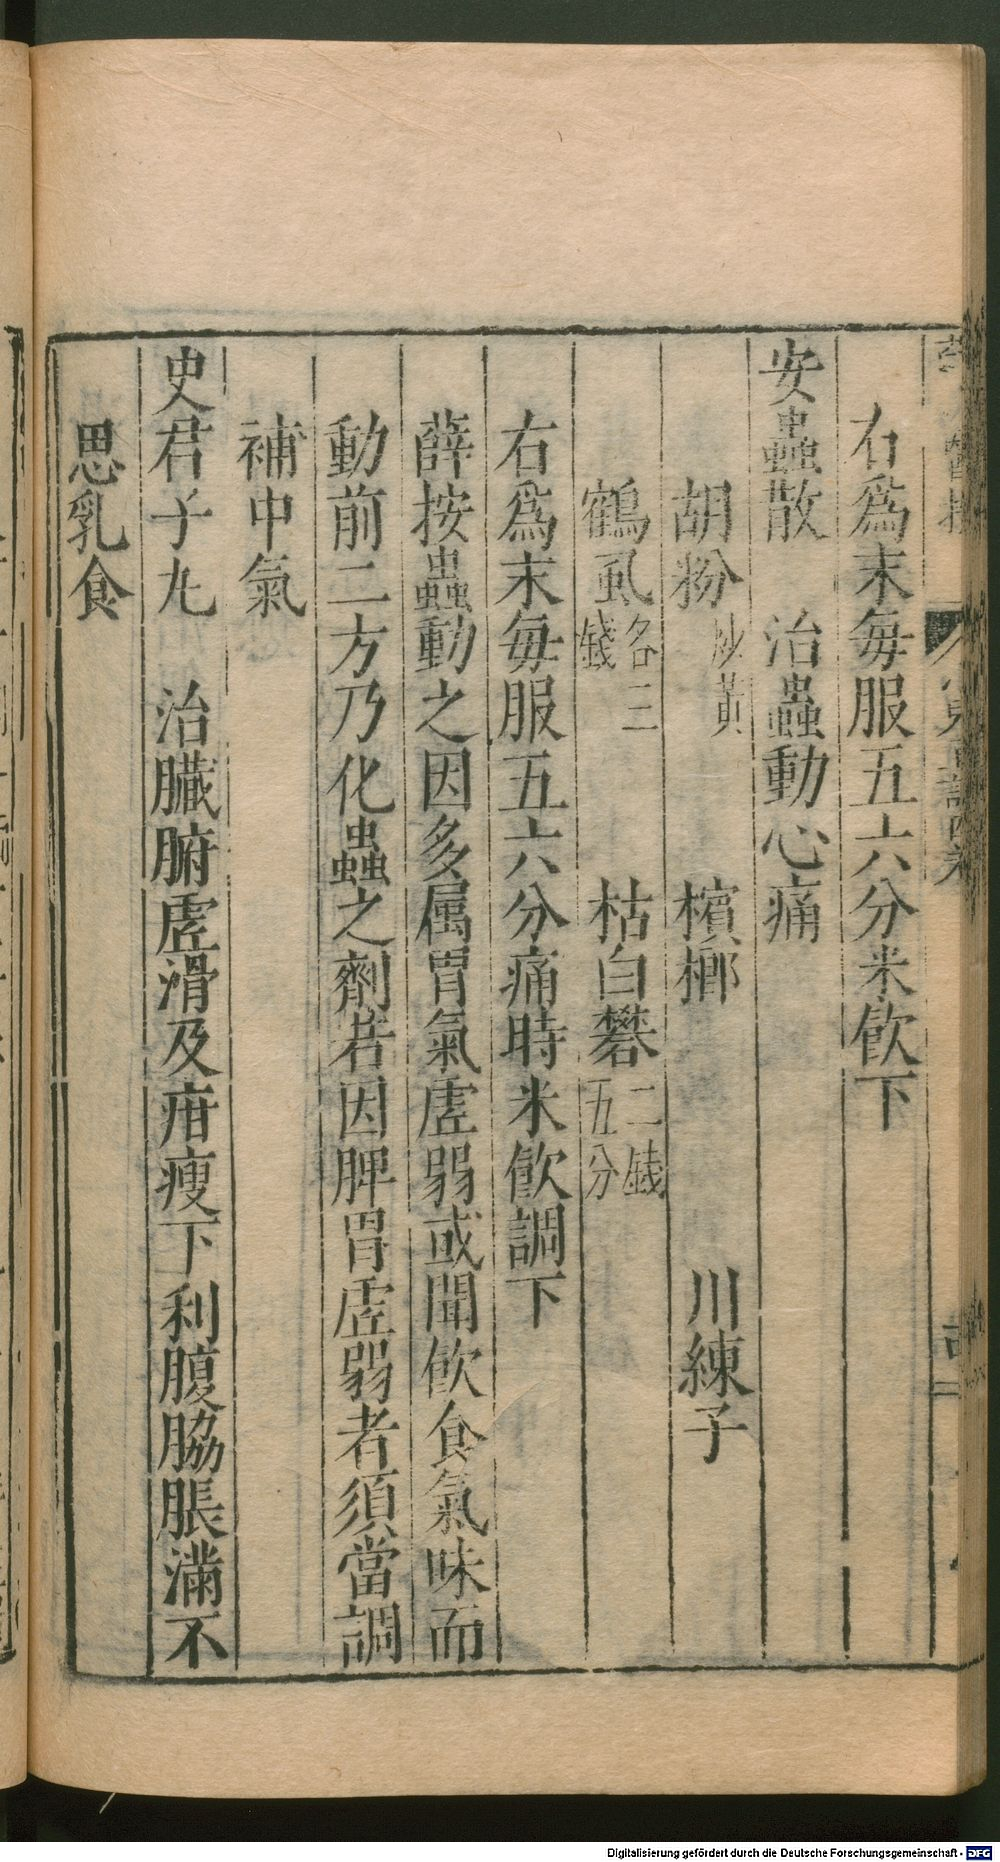 右爲末每服五六分米飮下
安蟲散　治蟲動心痛
胡粉炒黃　檳榔　川練子
鶴虱各二錢　枯白礬二錢五分
右爲末每服五六分痛時米飮調下
薛按蟲動之因多属胃氣虛弱或聞飮食氣味而
動前二方乃化蟲之劑若因脾胃虛弱者須當調
補中氣
史君子丸　治臟腑虛滑及疳瘦下利腹脇脹滿不
思乳食
Digitalisierung gefördert durch die Deutsche Forschungsgemeinschaft - DFG